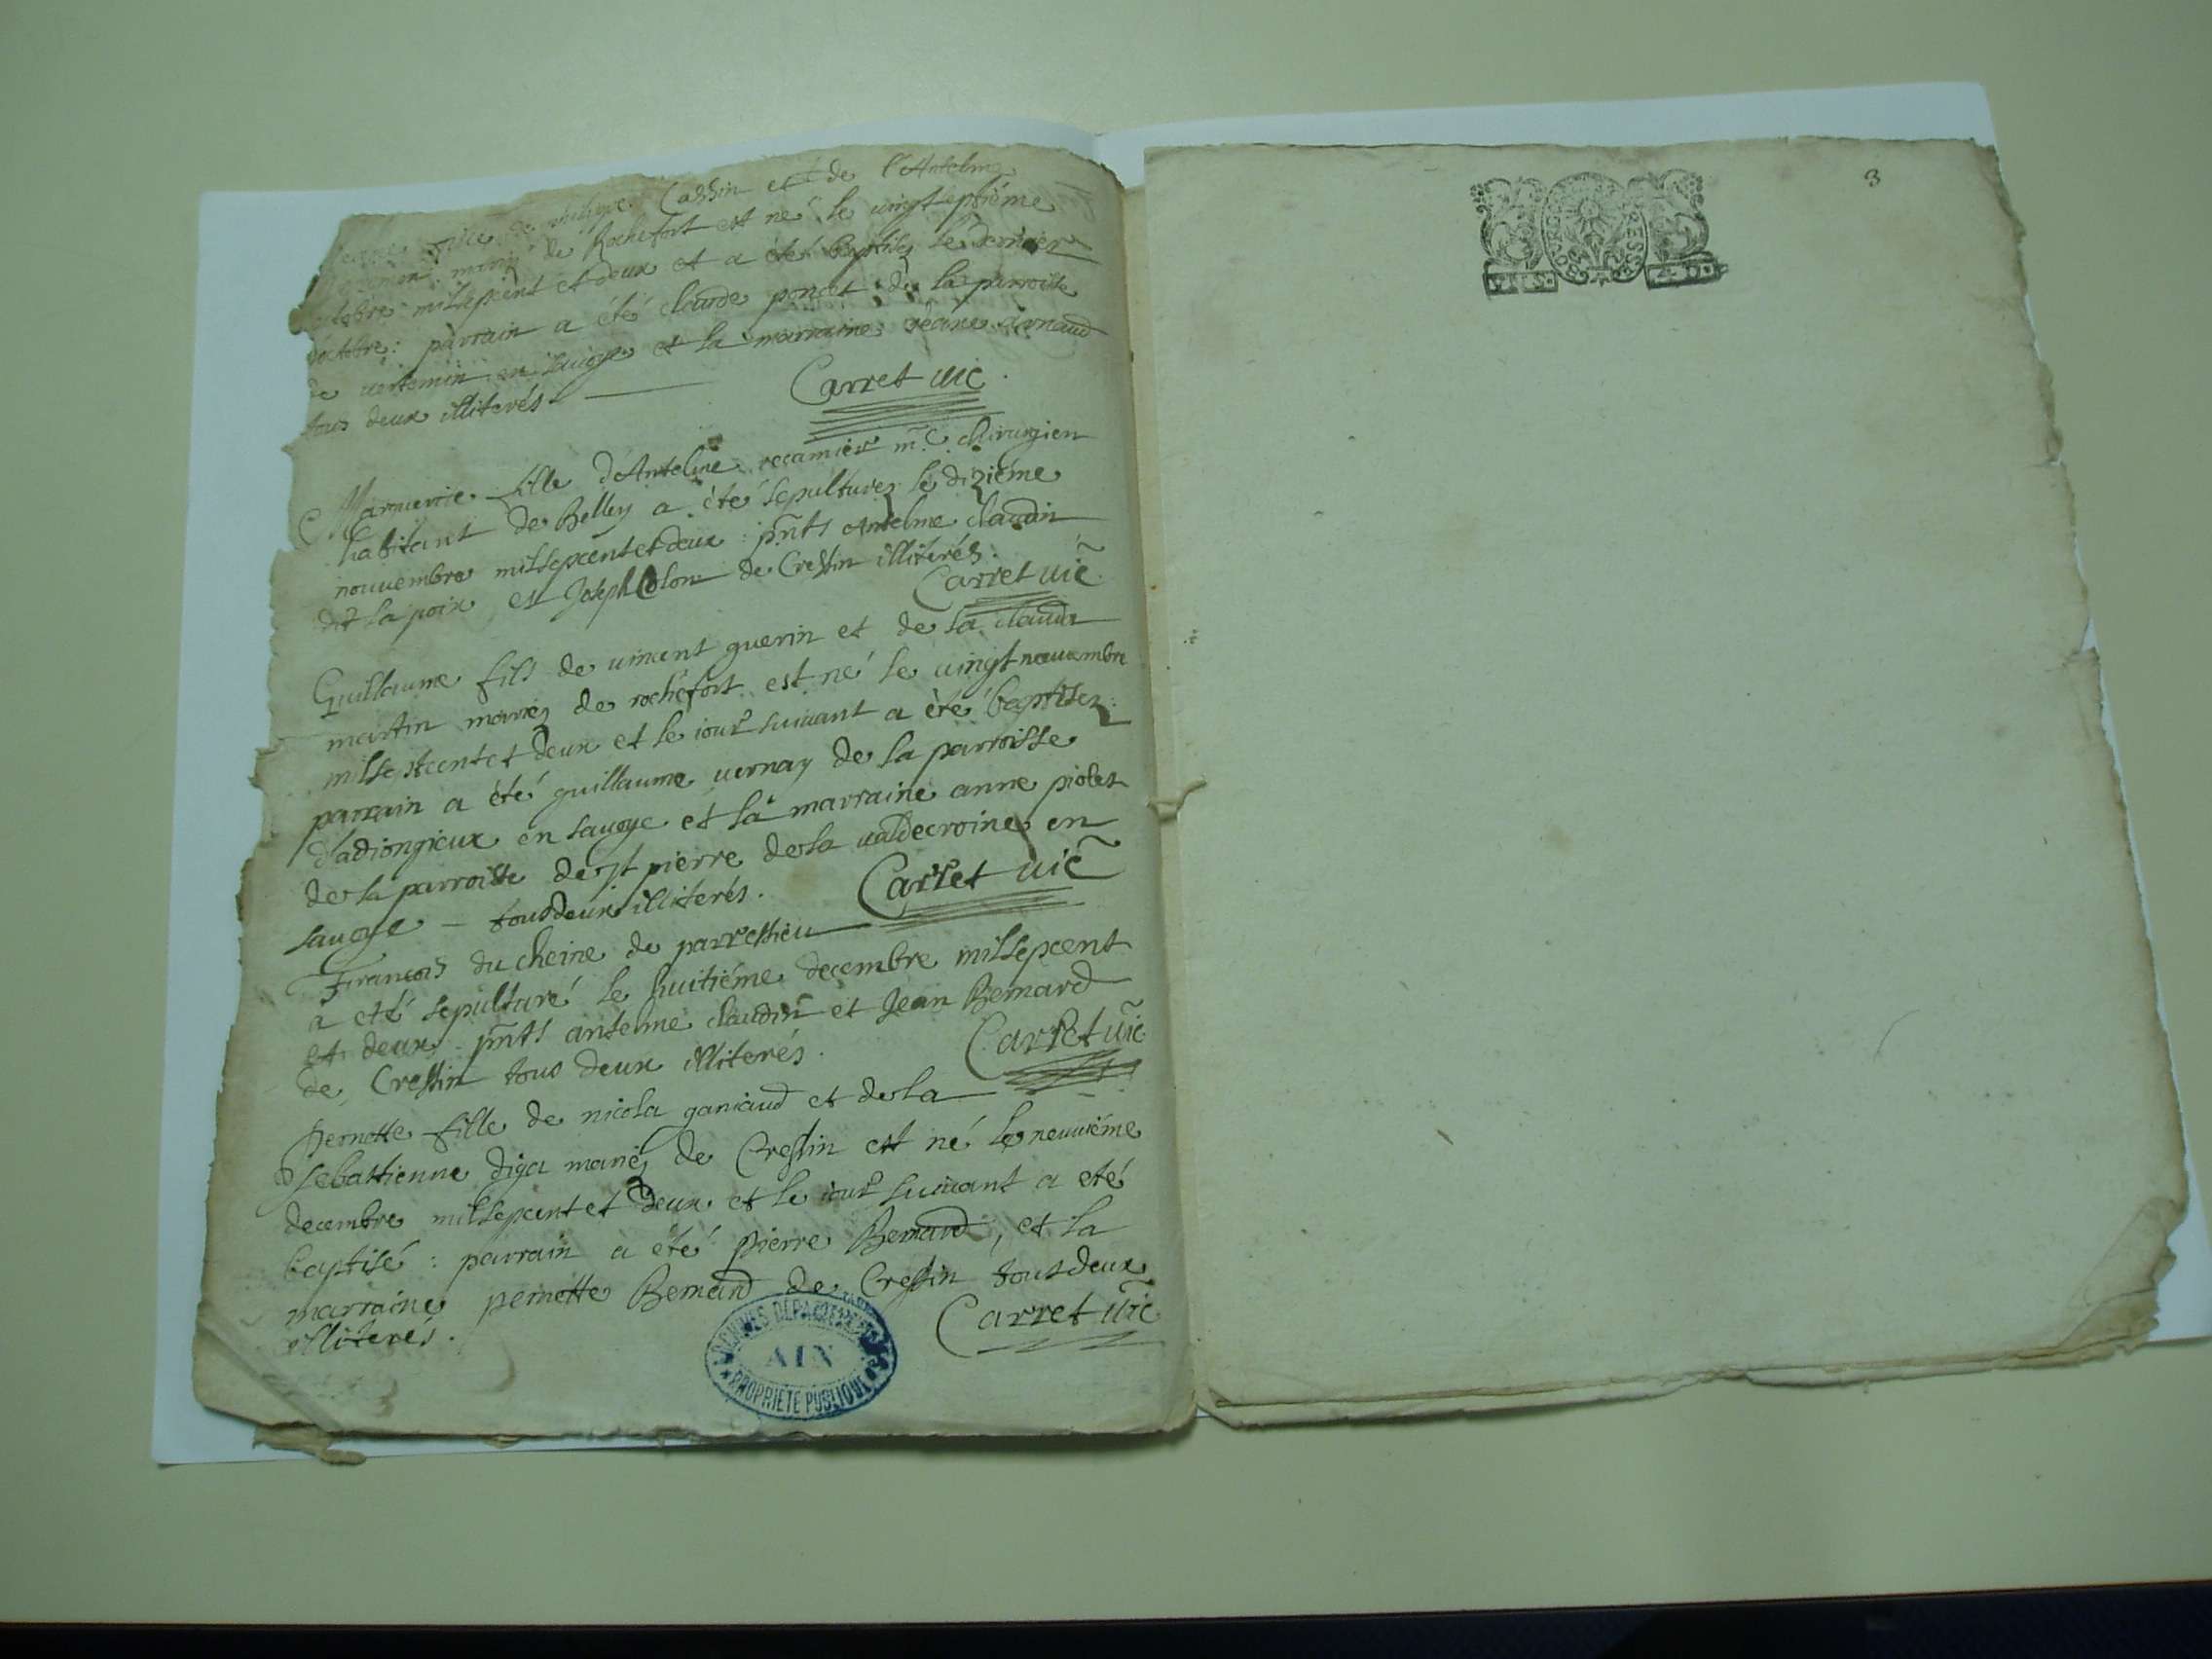 fille de Cassin et de l'Antelme
mariez de Rochefort est né le vingtseptiéme
octobre millsepcent et deux et a été baptisez le dernier
d'octobre : parrain a été claude poncet de la parroisse
de en sauoye et la marraine jeane arnaud
tous deux illiterés
Carret vic
Marguerite fille d'Antelme recamier mre chirurgien
habitant de Belley a été sepulturez le diziéme
nouuembre millsepcent et deux : pñts Antelme claudin
dit la poix et Joseph Colon de Cressin illiterés.
Carret vic
Guillaume fils de vincent guerin et de la clauda
martin mariez de rochefort est né le vingt nouuembre
millsepcent et deux et le iour suiuant a été baptisez :
parrain a été guillaume vernay de la parroisse
dadiongieux en sauoye et la marraine anne piolet
de la parroisse de st pierre de la valdecroine en
sauoye — tous deux illiterés.
Carret vic
François du cheine de parressieu
a eté sepulturé le huitiéme decembre millsepcent
et deux : pñts antelme claudin et Jean Bernard
de Cressin tous deux illiterés.
Carret vic
Pernette fille de nicola ganiaud et de la
sebastienne diga mariez de Cressin est né le neuuiéme
decembre millsepcent et deux et le iour suiuant a eté
baptisé : parrain a été pierre Bernard, et la
marraine pernette Bernard de Cressin tous deux
illiterés.
Carret vic
ARCHIVES DÉPARTEMENTALES
AIN
PROPRIÉTÉ PUBLIQUE
3